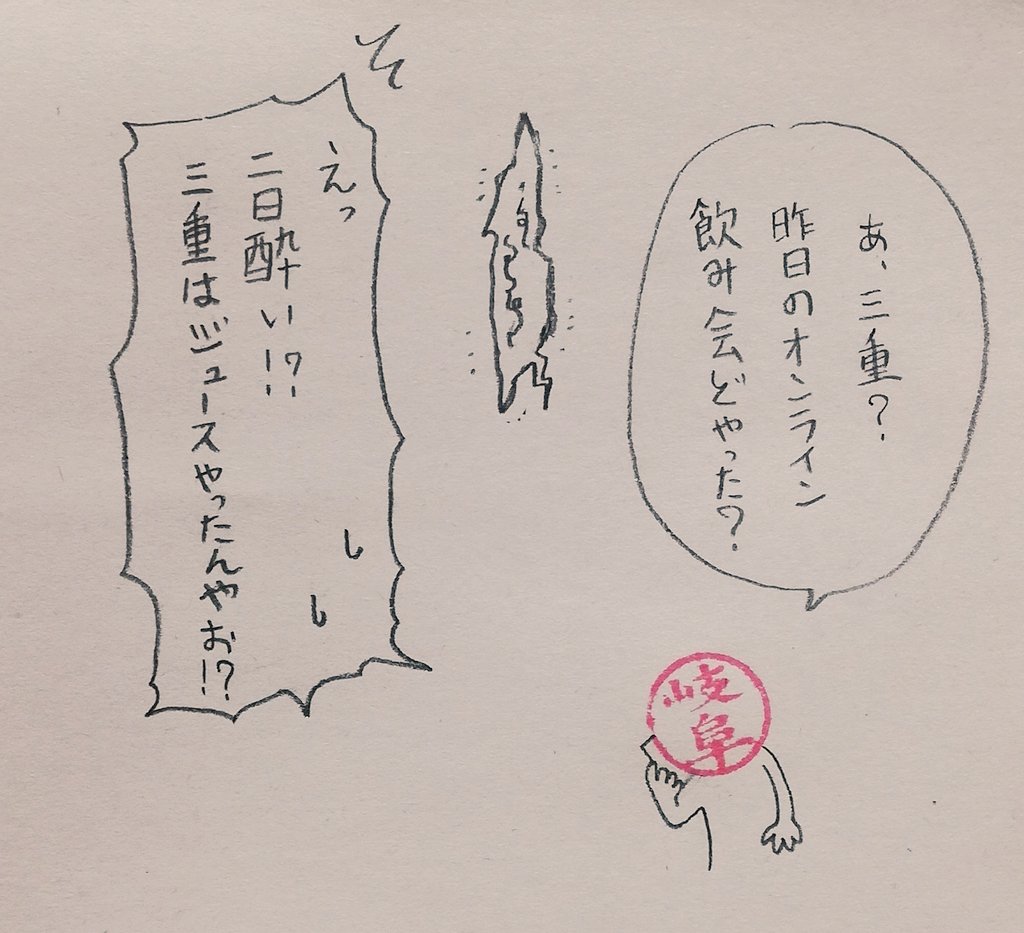 あ、三重?
昨日のオンライン
飲み会どやった?
えっ
二日酔い!?
三重はジュースやったんやお!?
そ
岐阜